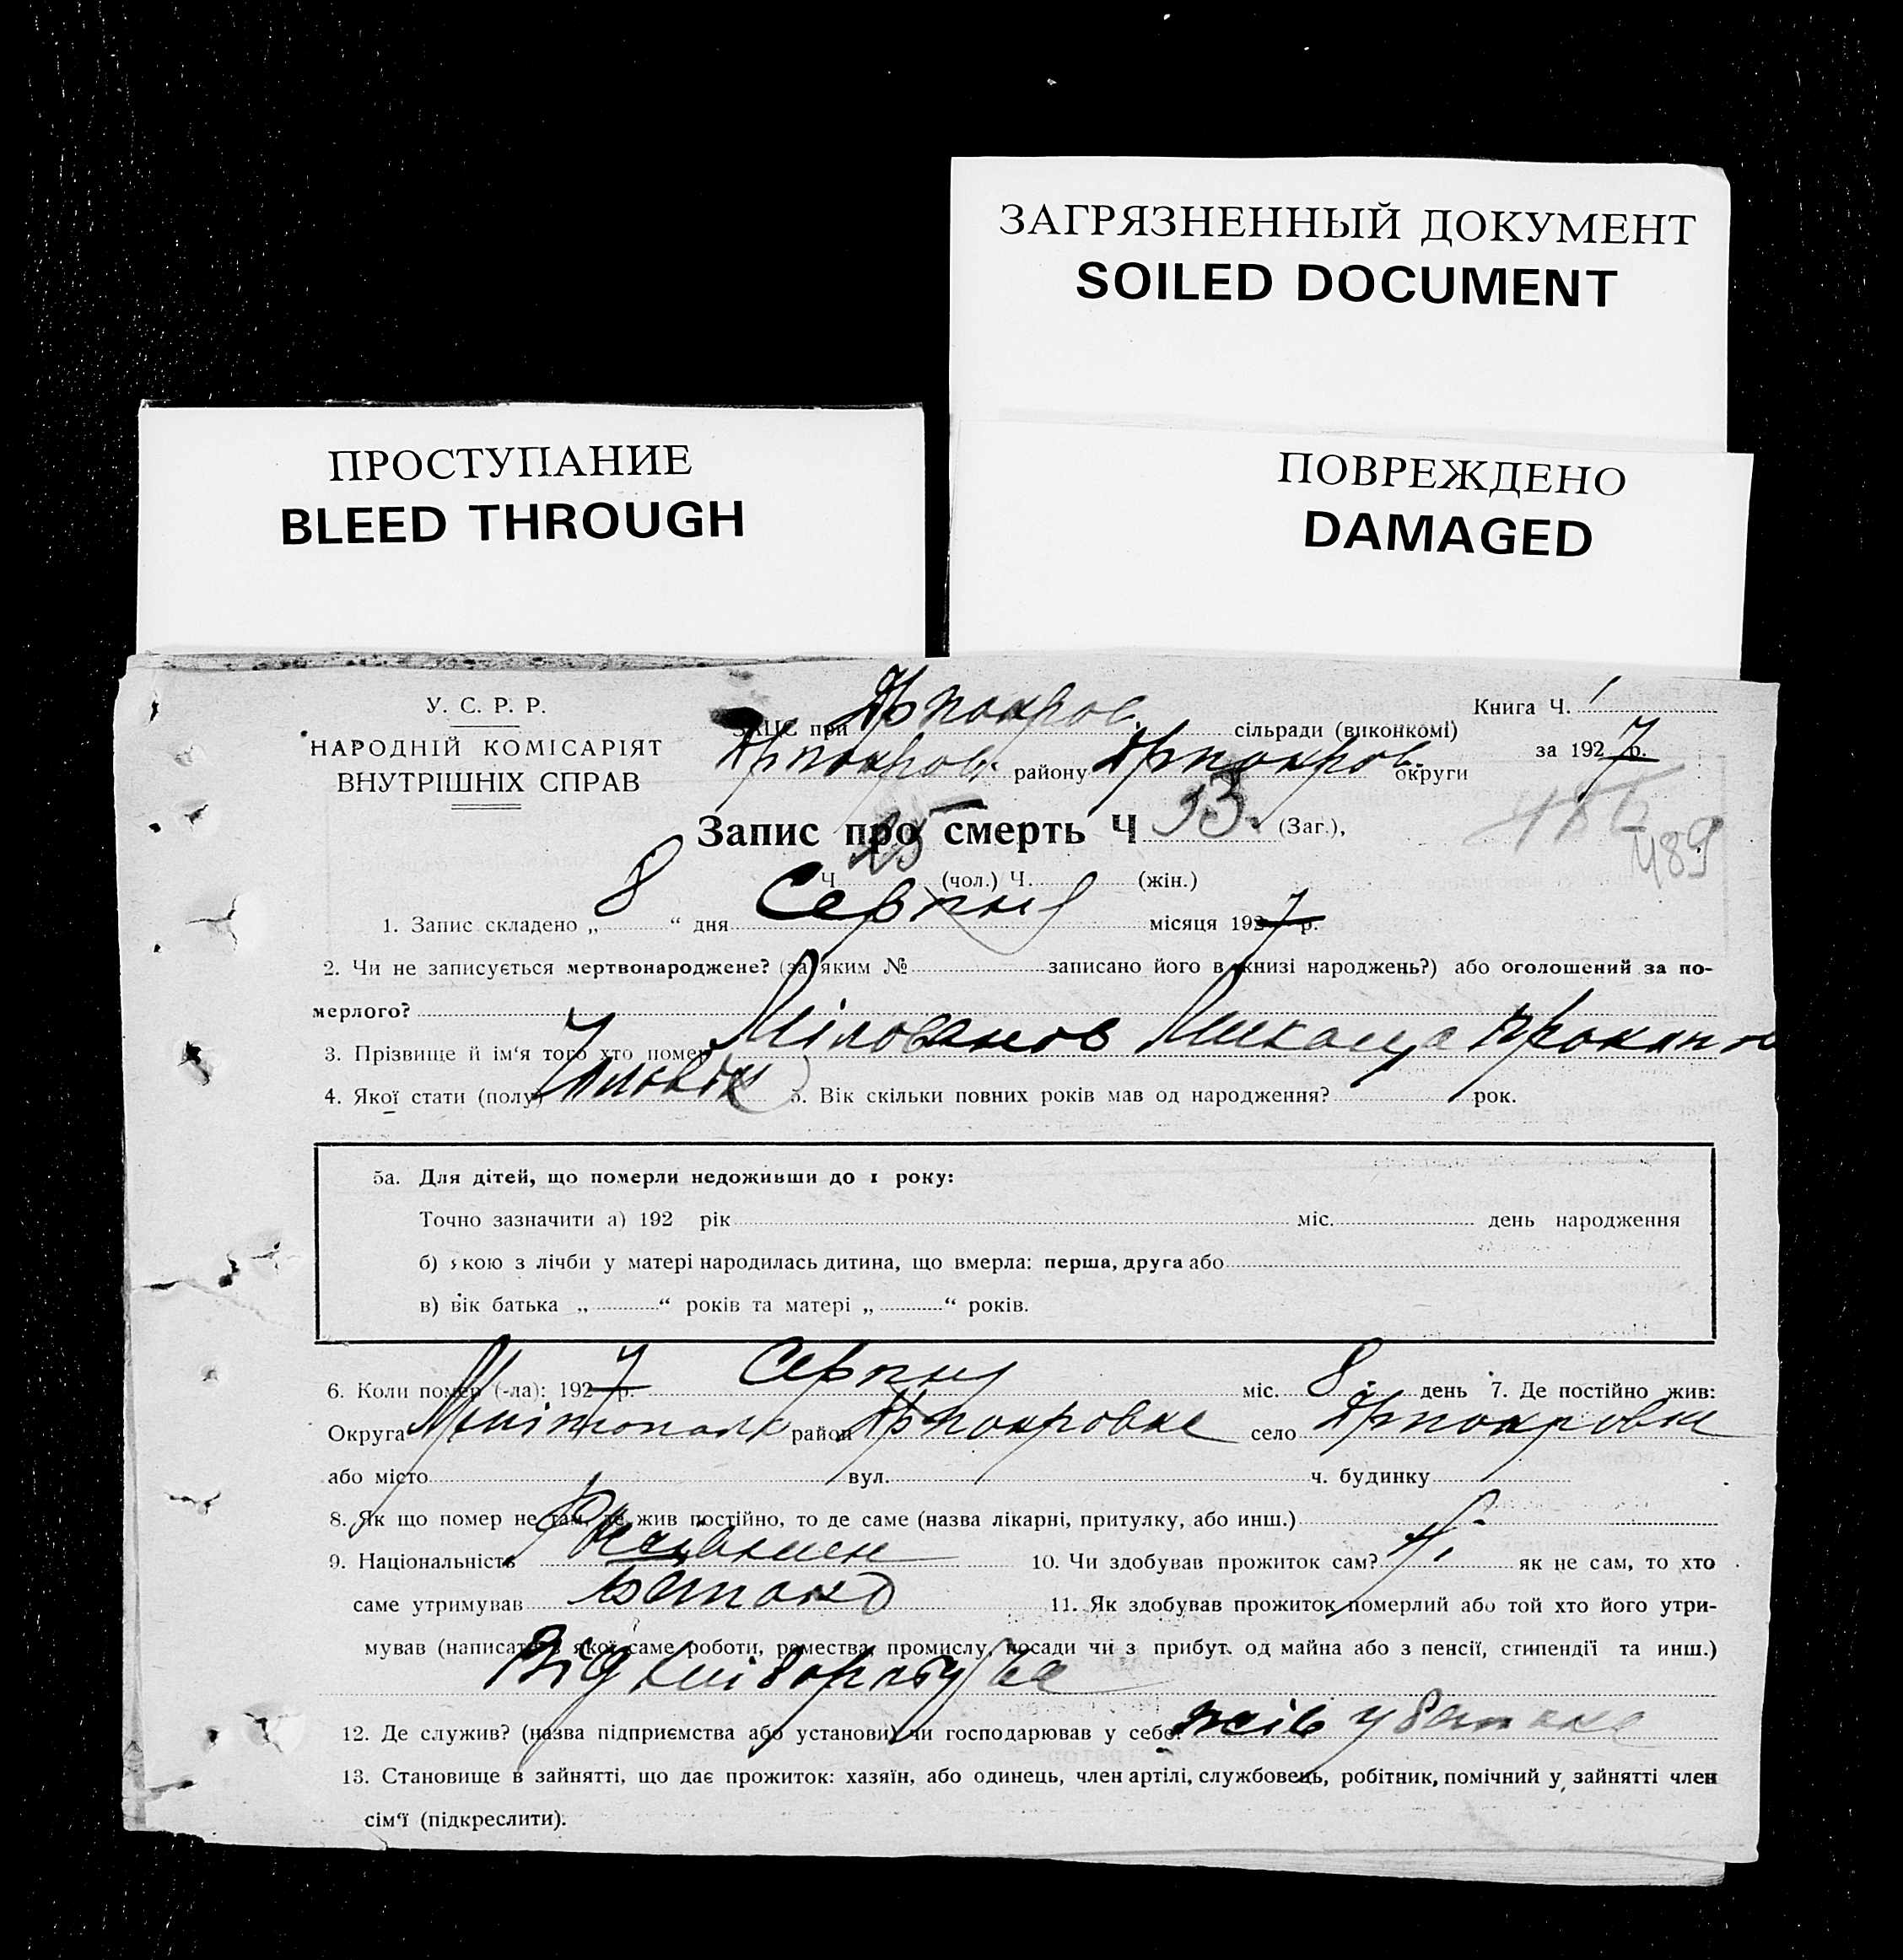 ЗАГРЯЗНЕННЫЙ ДОКУМЕНТ
SOILED DOCUMENT
ПРОСТУПАНИЕ
BLEED THROUGH
ПОВРЕЖДЕНО
DAMAGED
У. С. Р. Р.
НАРОДНІЙ КОМІСАРІЯТ
ВНУТРІШНІХ СПРАВ
Книга Ч. 1
за 1927 р.
ЗАЦС при сільради (виконкомі)
району округи
486
489
Запис про смерть Ч 53. (Заг.),
Ч 25 (чол.) Ч. (жін.)
1. Запис складено „ 8 “ дня Серпня місяця 1927 р.
2. Чи не записується мертвонароджене? (за яким № записано його в книзі народжень?) або оголошений за по-
мерлого?
3. Прізвище й ім‘я того хто помер Мілованов Микола
4. Якої стати (полу) Чоловік 5. Вік скільки повних років мав од народження? рок.
5а. Для дітей, що померли недоживши до 1 року:
Точно зазначити а) 192 рік міс. день народження
б) якою з лічби у матері народилась дитина, що вмерла: перша, друга або
в) вік батька „ “ років та матері „ “ років.
6. Коли помер (-ла): 1927 р. Серпня міс. 8 день 7. Де постійно жив:
Округа район село
або місто вул. ч. будинку
8. Як що помер не там, де жив постійно, то де саме (назва лікарні, притулку, або инш.)
9. Національність 10. Чи здобував прожиток сам? Ні як не сам, то хто
саме утримував Батько 11. Як здобував прожиток померлий або той хто його утри-
мував (написати з якої саме роботи, ремества, промислу, посади чи з прибут. од майна або з пенсії, стипендії та инш.)
Від
12. Де служив? (назва підприємства або установи) чи господарював у себе? жів у батька
13. Становище в зайнятті, що дає прожиток: хазяїн, або одинець, член артілі, службовець, робітник, помічний у зайнятті член
сім‘ї (підкреслити).